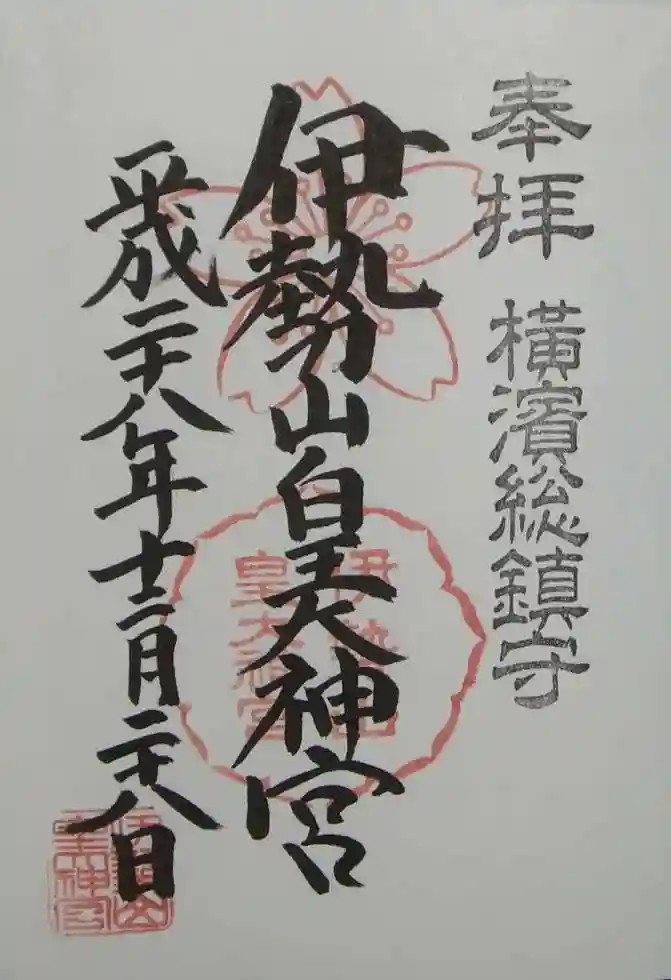 奉拝 横濱総鎮守
伊勢山皇大神宮
伊勢山
皇大神宮
平成二十八年十二月二十八日
伊勢山
皇大神宮